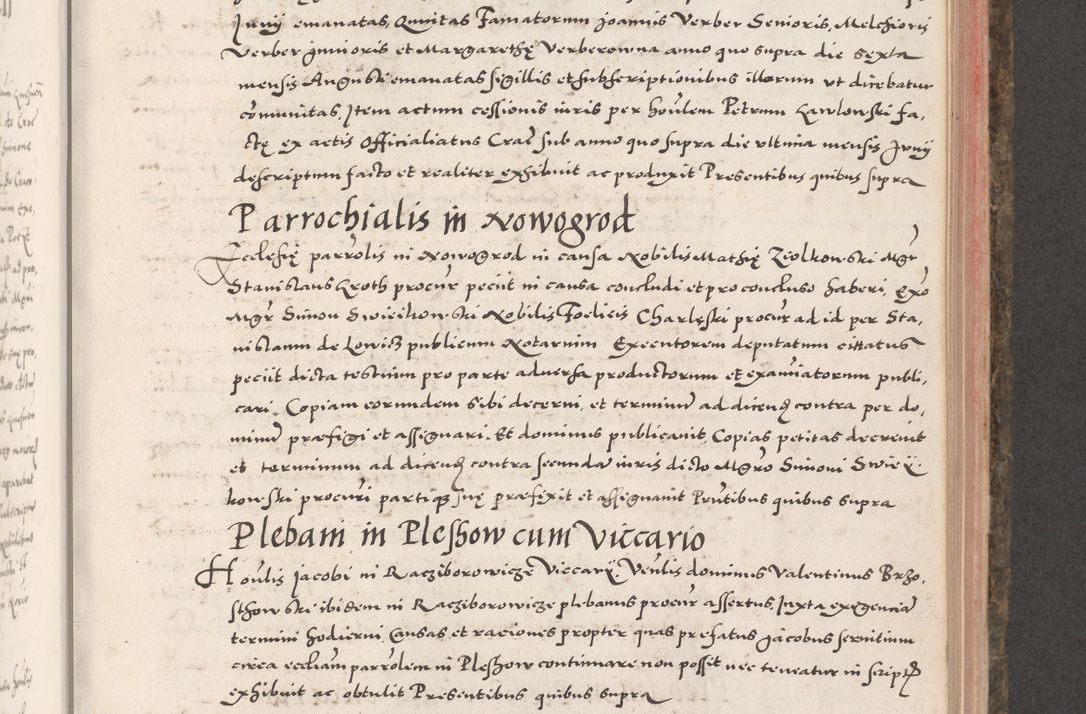 Junij emanatas, Quintas Famatorum Joannis Verber Senioris, Melchioris
Verber Junioris et Margarethę Verberowna anno quo supra die sexta
mensis Augusti emanatas sigillis et subscriptionibus illorum ut dicebatur
comunitas, Item actum cessionis iuris per honlem Petrum Lawlowski fa,
ctę ex actis Officialiatus Crac̃ sub anno quo supra die ultima mensis Junij
descriptum facto et realiter exhibuit ac produxit Presentibus quibus supra
Parrochialis in Nowogrod
Ecclesię parrolis in Nowogrod in causa Nobilis Mathię Ziolkowski Mgr
Stanislaus Kroth procur peciit in causa concludi et pro concluso haberi, Exo
Mgr Simon Swieikowski Nobilis Foelicis Charlęski procur ad id per Sta,
nislaum de Lowicz publicum Notarium Executorem deputatum citatus
peciit dicta testium pro parte adversa productorum et examinatorum publi,
cari. Copiam eorundem sibi decerni, et terminũ ad dicend contra per do,
minũ præfigi et assignari. Et dominus publicavit, Copias petitas decrevit
et terminum ad dicend contra secundã iuris dicto Mgro Simoni Swiey,
kowski procuri partiq suę præfixit et assignavit Pñtibus quibus supra
Plebani in Pleshow cum Viccario
Honlis Jacobi in Racziborowicze Viccarij. Venlis dominus Valentinus Brzo,
sthowski ibidem in Racziborowicze plebanus procur assertus, Juxta exigenciã
termini hodierni causas et raciones propter quas prefatus Jacobus servitium
circa eccliam parrolem in Pleshow continuare non posset nec teneatur in scriptis
exhibuit ac obtulit Presentibus quibus supra